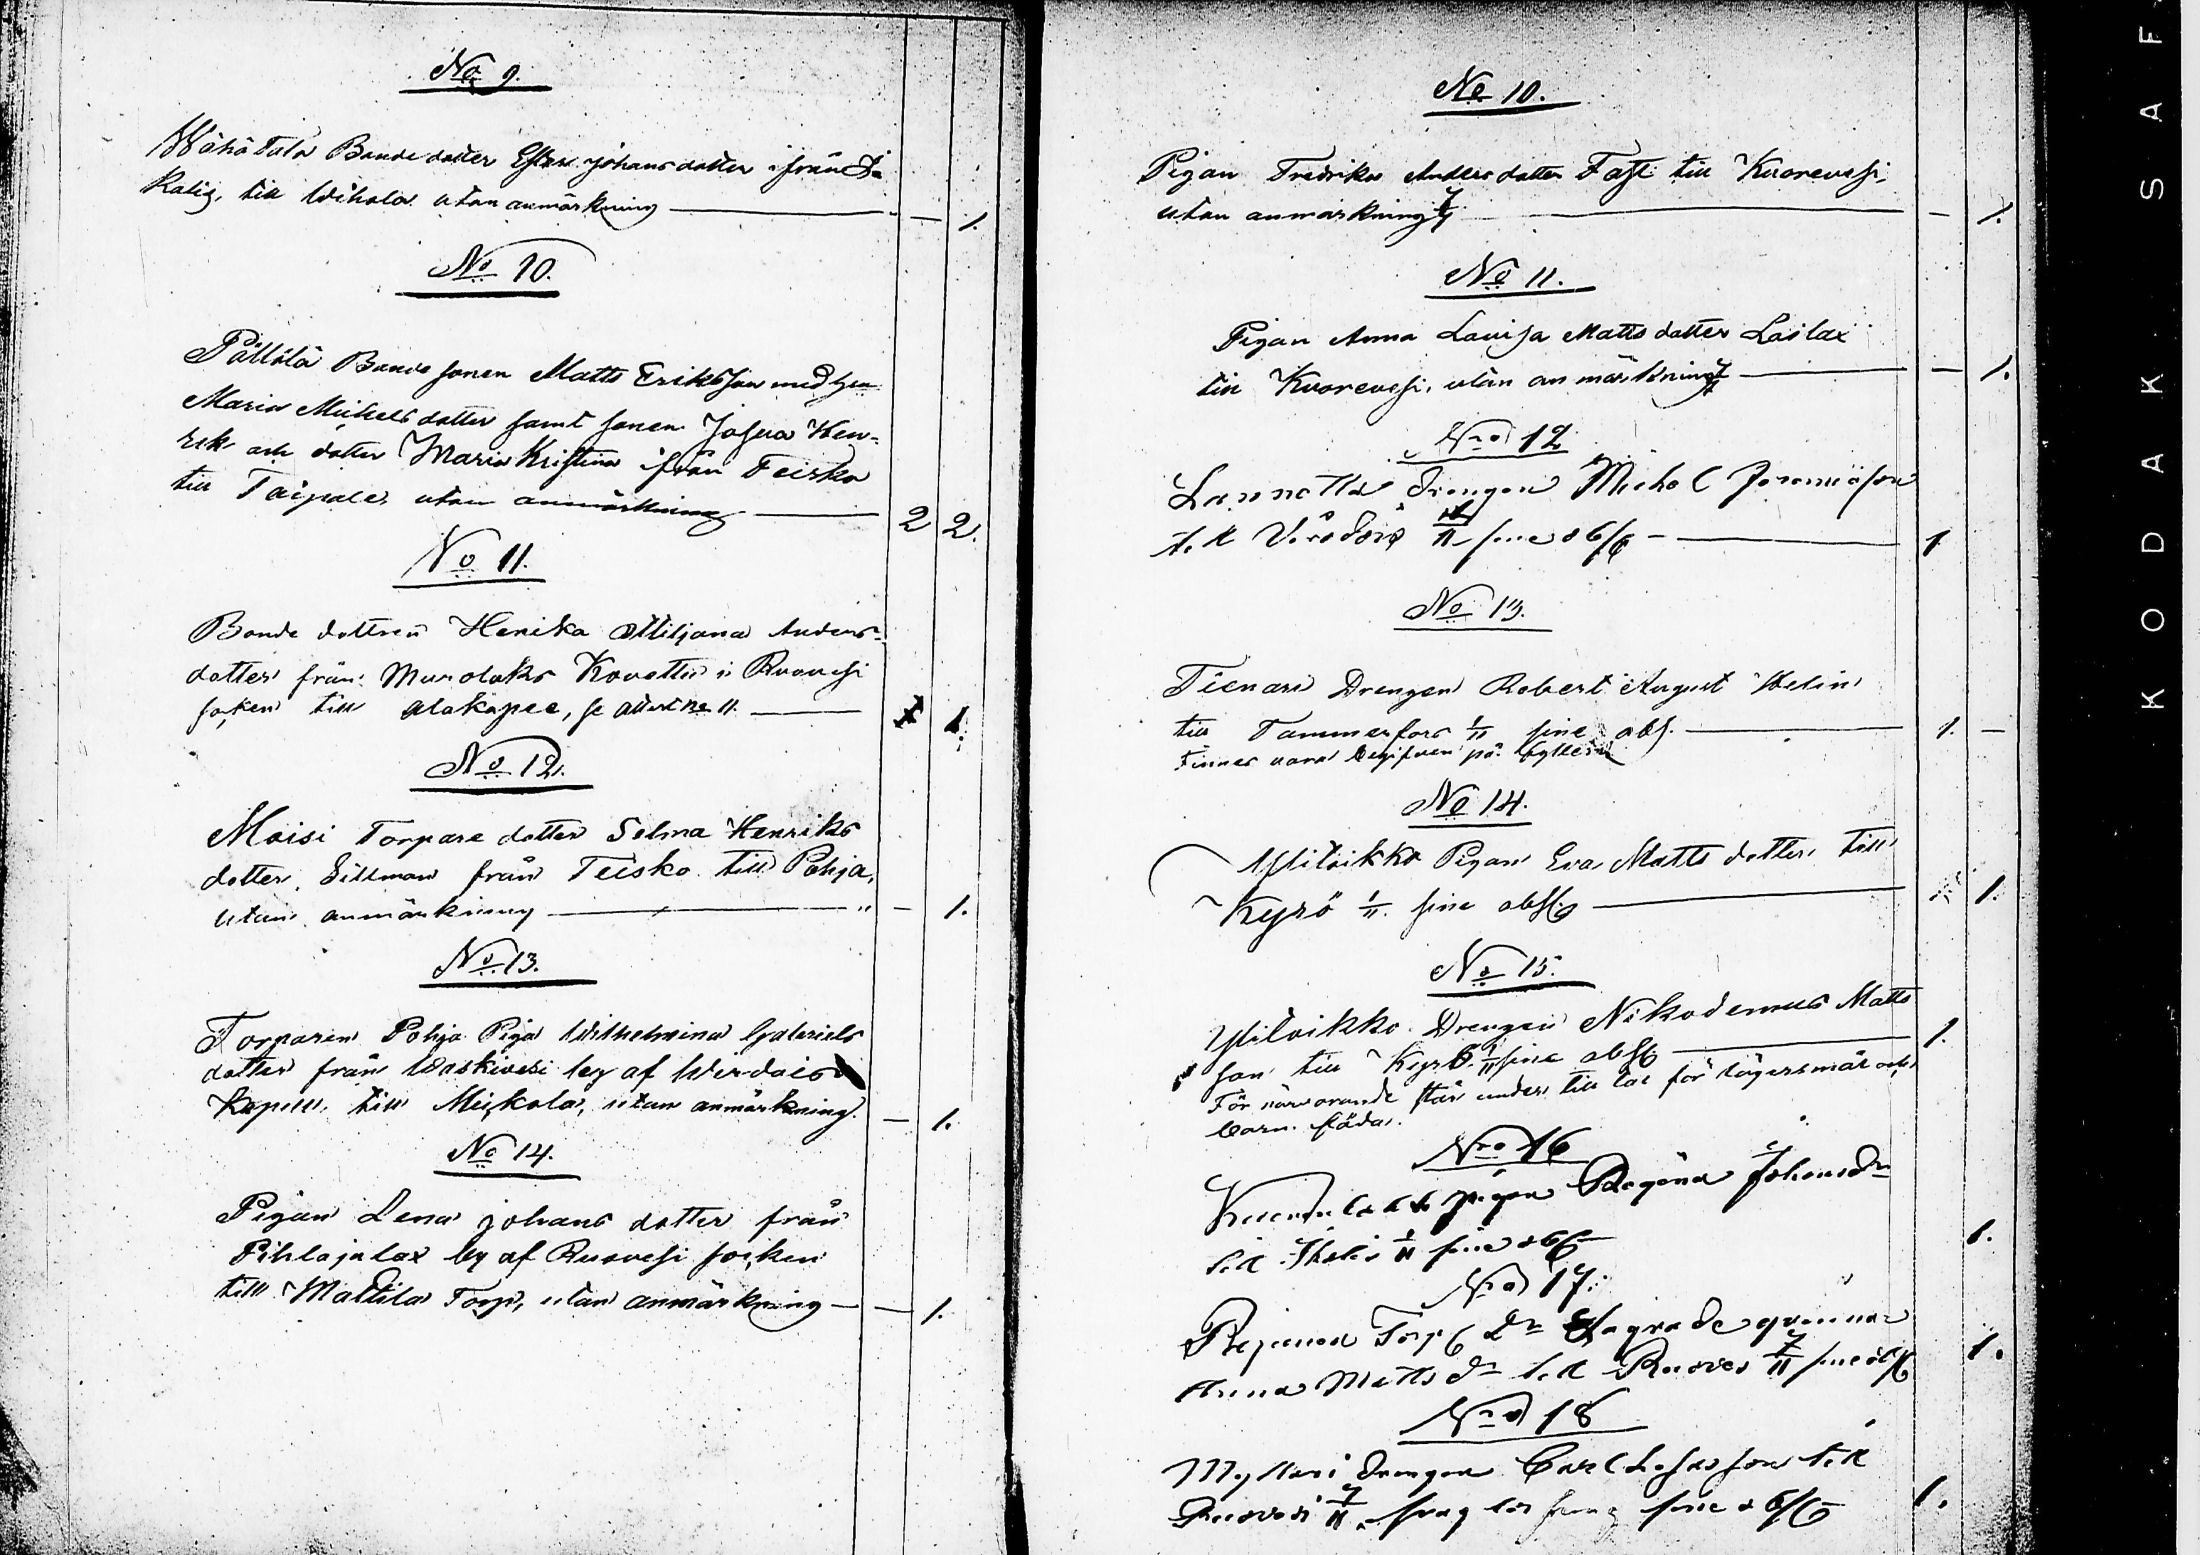 No 9.
Wähätalo Bonde dotter Ester Johans dotter ifrån
Kalig, till Wihola utan anmärkning — 1.
No 10.
Pällilä Bonde sonen Matts Eriksson med hu
Maria Michels dotter samt sonen Josua Hen-
rik och dotter Maria Kristina ifrån Teisko
till Taipale, utan anmärkning 2 2.
No 11.
Bonde dottren Henika Miljana Anders-
dotter från Muroloks Kovettu i Ruovesi
socken till Alakapee, se attest No 11. 1.
No 12.
Moisi Torpare dotter Selma Henriks
dotter Sillman från Teisko till Pohja,
utan anmärkning " — 1.
No 13.
Torparen Pohja Piga Wilhelmina Gabriels
dotter från Waskivesi by af Wirdois
Kapell till Mickola, utan anmärkning. — 1.
No 14.
Pigan Lena Johans dotter från
Pihlajalax by af Ruovesi socken
till Mattila Torp, utan anmärkning — 1.
No 10.
Pigan Fredrika Anders dotter Fast till Kuorevesi,
utan anmärkning — 1.
No 11.
Pigan Anna Lovisa Matts dotter Lailax
till Kuorevesi, utan anmärkning — 1.
Nro 12
Drengen Michel Jeremiasson
till Virdois sine obs 1
No 13.
Tienari Drengen Robert August Helin
till Tammerfors 1/11 sine obs. 1. —
Finnes vara begifven på fylleri
No 14.
Ylitoikko Pigan Eva Matts dotter till
Kyrö 1/11 sine obs 1.
No 15.
Ylitoikko Drengen Nikodemus Matts
son till Kyrö 1/11 sine obs 1.
För närvarande står under till tal för lägersmål och
barn föda.
Nro 16
pigan Regina Johansdr
till 1/11 sine obs 1.
Nro 17.
Torp Dr Lägrade qvinnan
Anna Matts dr till Ruoves 7/11 sine obs 1.
Nro 18
Myllari drengen Carl son till
Ruovesi 7/11 sine obs 1.
KODAK SAF